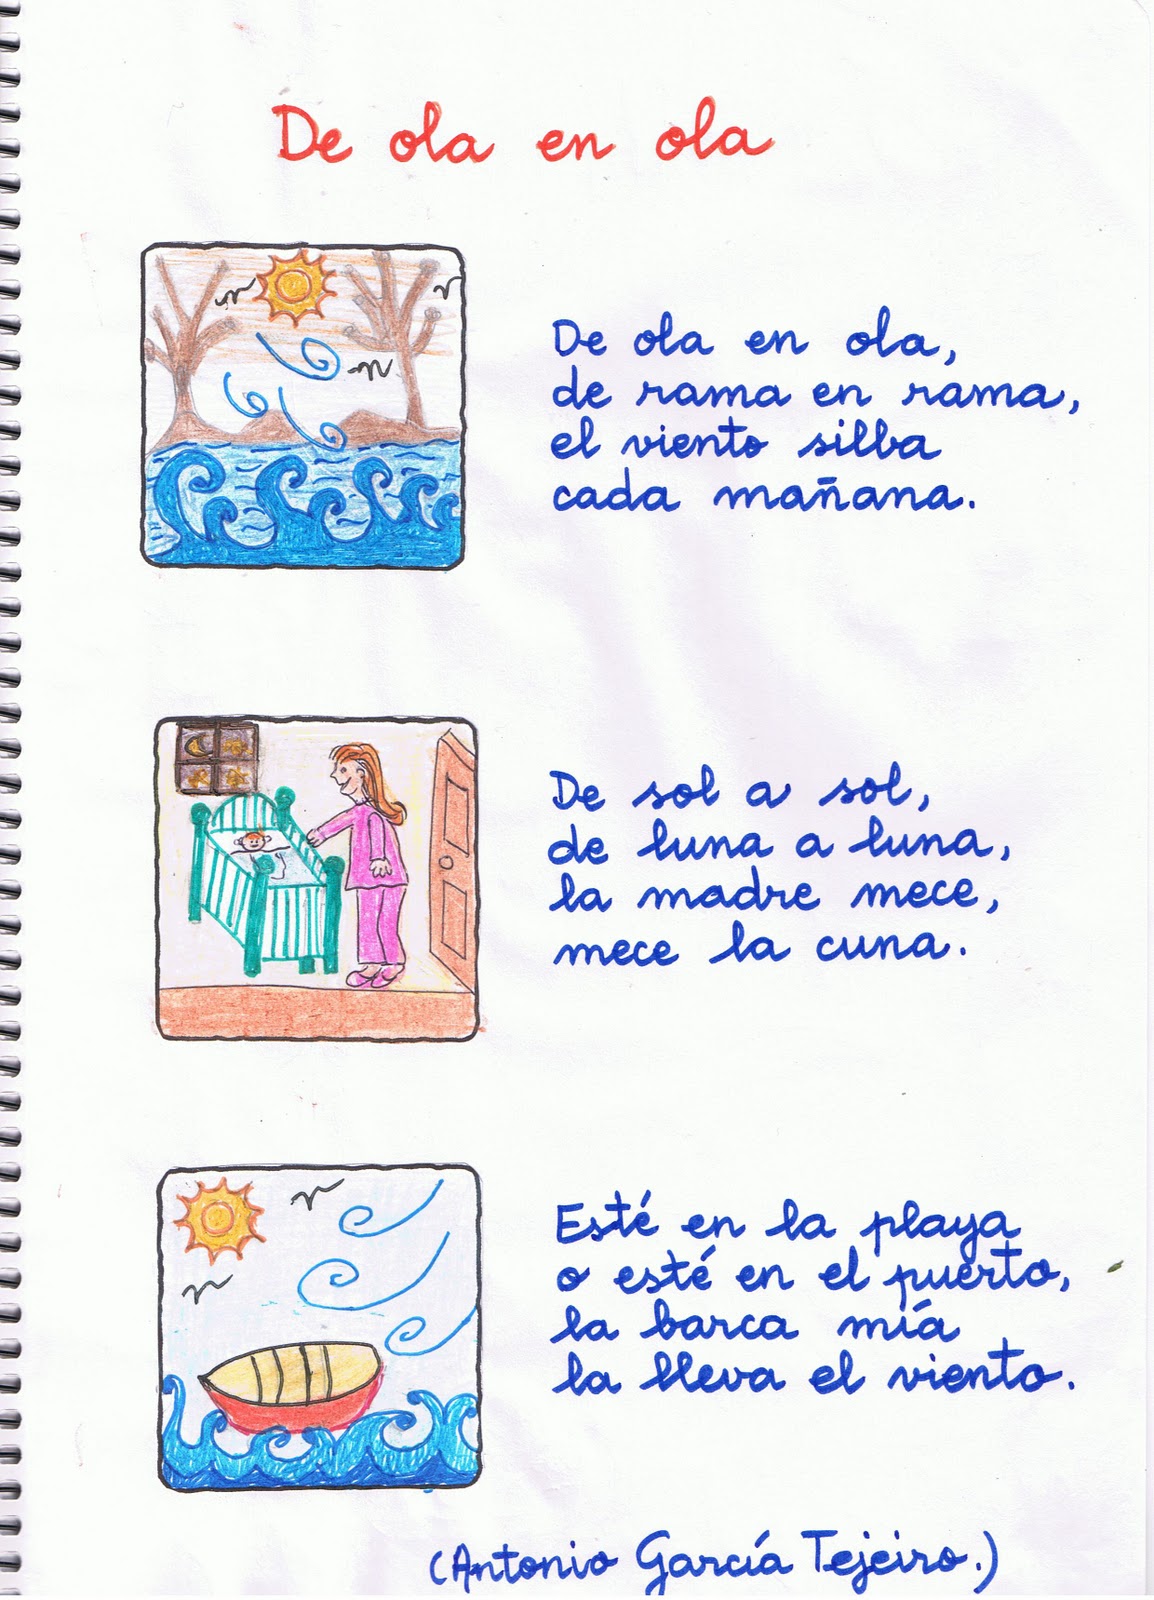 De ola en ola
De ola en ola,
de rama en rama,
el viento silba
cada mañana.
De sol a sol,
de luna a luna,
la madre mece,
mece la cuna.
Esté en la playa
o esté en el puerto,
la barca mía
la lleva el viento.
(Antonio García Tejeiro.)